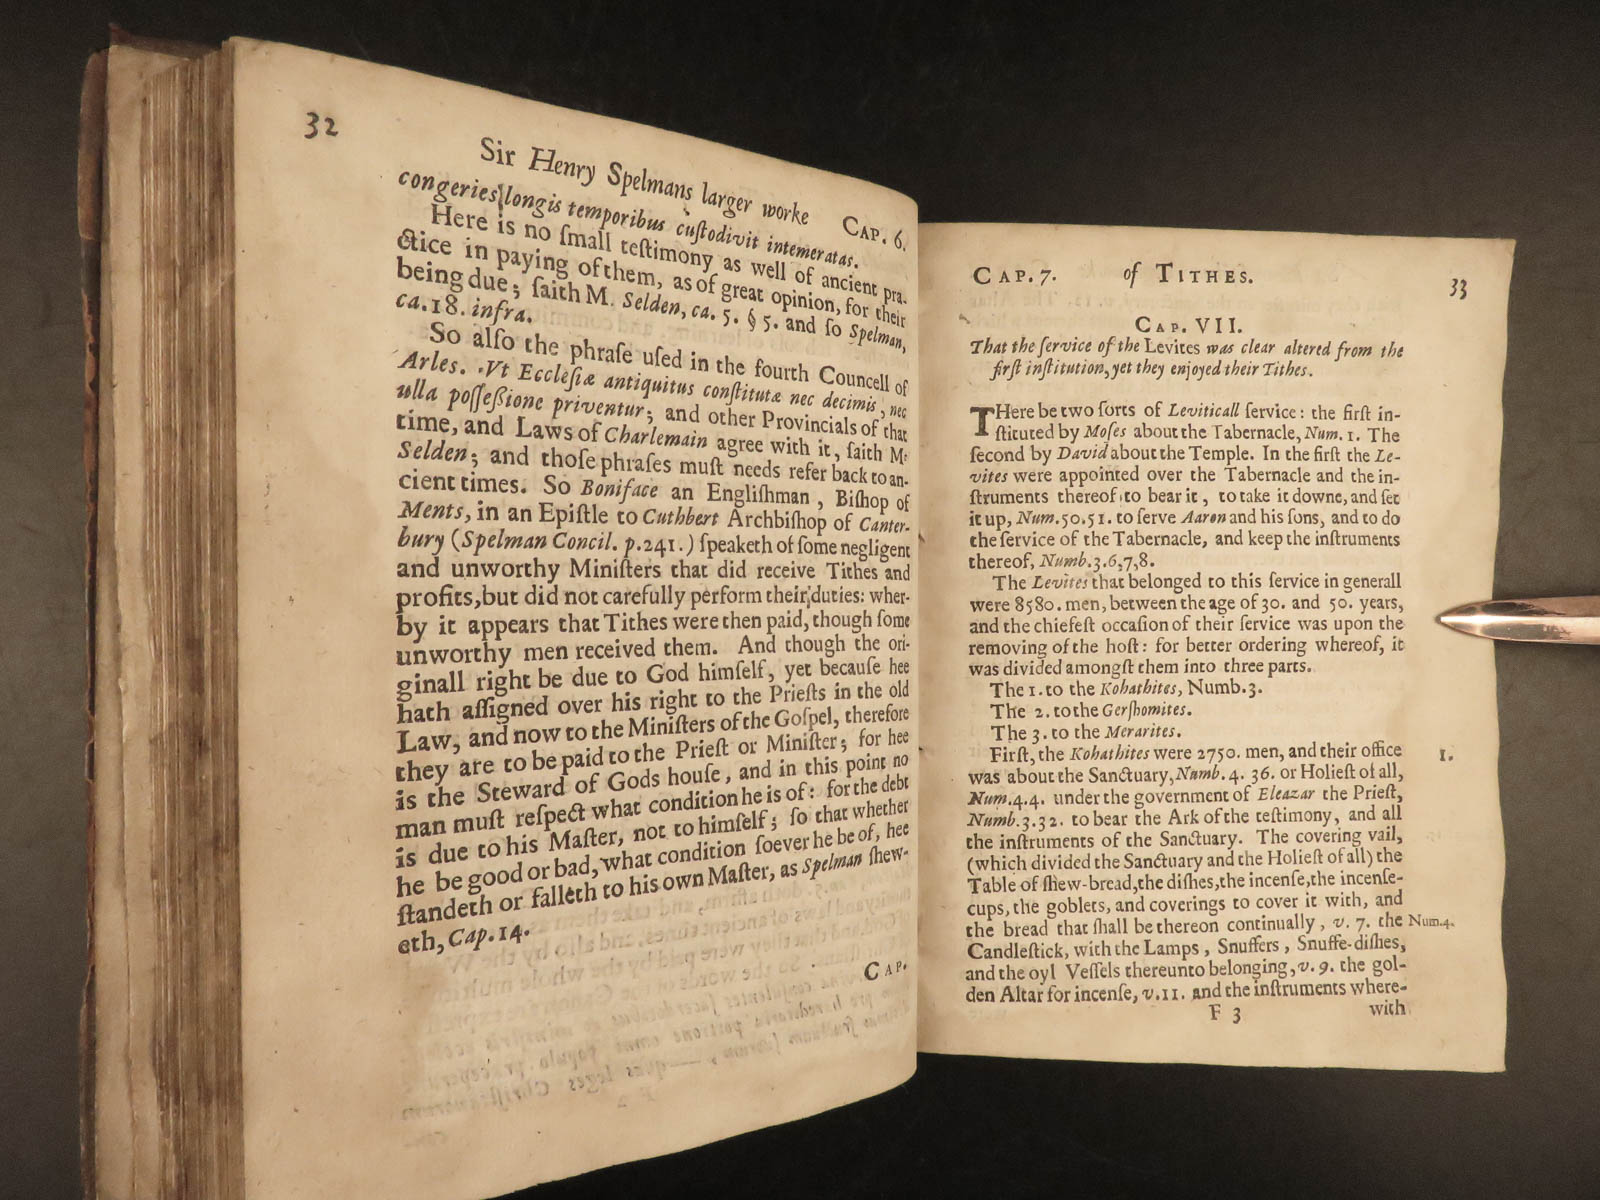 32
Sir Henry Spelmans larger worke Cap. 6.
congeries longis temporibus cuſtodivit intemeratas.
Here is no ſmall teſtimony as well of ancient pra-
ctice in paying of them, as of great opinion, for their
being due; ſaith M. Selden, ca. 5. § 5. and ſo Spelman,
ca. 18. infra.
So alſo the phraſe uſed in the fourth Councell of
Arles. Vt Eccleſiæ antiquitus conſtitutæ nec decimis, nec
ulla poſſeßione priventur; and other Provincials of that
time, and Laws of Charlemain agree with it, ſaith M.
Selden; and thoſe phraſes muſt needs refer back to an-
cient times. So Boniface an Engliſhman, Biſhop of
Ments, in an Epiſtle to Cuthbert Archbiſhop of Canter-
bury (Spelman Concil. p. 241.) ſpeaketh of ſome negligent
and unworthy Miniſters that did receive Tithes and
profits, but did not carefully perform their duties: wher-
by it appears that Tithes were then paid, though ſome
unworthy men received them. And though the ori-
ginall right be due to God himſelf, yet becauſe hee
hath aſſigned over his right to the Prieſts in the old
Law, and now to the Miniſters of the Goſpel, therefore
they are to be paid to the Prieſt or Miniſter; for hee
is the Steward of Gods houſe, and in this point no
man muſt reſpect what condition he is of: for the debt
is due to his Maſter, not to himſelf; ſo that whether
he be good or bad, what condition ſoever he be of, hee
ſtandeth or falleth to his own Maſter, as Spelman ſhew-
eth, Cap. 14.
Cap.
Cap. 7. of Tithes. 33
Cap. VII.
That the ſervice of the Levites was clear altered from the
firſt inſtitution, yet they enjoyed their Tithes.
THere be two ſorts of Leviticall ſervice: the firſt in-
ſtituted by Moſes about the Tabernacle, Num. 1. The
ſecond by David about the Temple. In the firſt the Le-
vites were appointed over the Tabernacle and the in-
ſtruments thereof, to bear it, to take it downe, and ſet
it up, Num. 50. 51. to ſerve Aaron and his ſons, and to do
the ſervice of the Tabernacle, and keep the inſtruments
thereof, Numb. 3. 6, 7, 8.
The Levites that belonged to this ſervice in generall
were 8580. men, between the age of 30. and 50. years,
and the chiefeſt occaſion of their ſervice was upon the
removing of the hoſt: for better ordering whereof, it
was divided amongſt them into three parts.
The 1. to the Kohathites, Numb. 3.
The 2. to the Gerſhomites.
The 3. to the Merarites.
Firſt, the Kohathites were 2750. men, and their office 1.
was about the Sanctuary, Numb. 4. 36. or Holieſt of all,
Num. 4. 4. under the government of Eleazar the Prieſt,
Numb. 3. 32. to bear the Ark of the teſtimony, and all
the inſtruments of the Sanctuary. The covering vail,
(which divided the Sanctuary and the Holieſt of all) the
Table of ſhew-bread, the diſhes, the incenſe, the incenſe-
cups, the goblets, and coverings to cover it with, and
the bread that ſhall be thereon continually, v. 7. the Num. 4.
Candleſtick, with the Lamps, Snuffers, Snuffe-diſhes,
and the oyl Veſſels thereunto belonging, v. 9. the gol-
den Altar for incenſe, v. 11. and the inſtruments where-
F 3 with